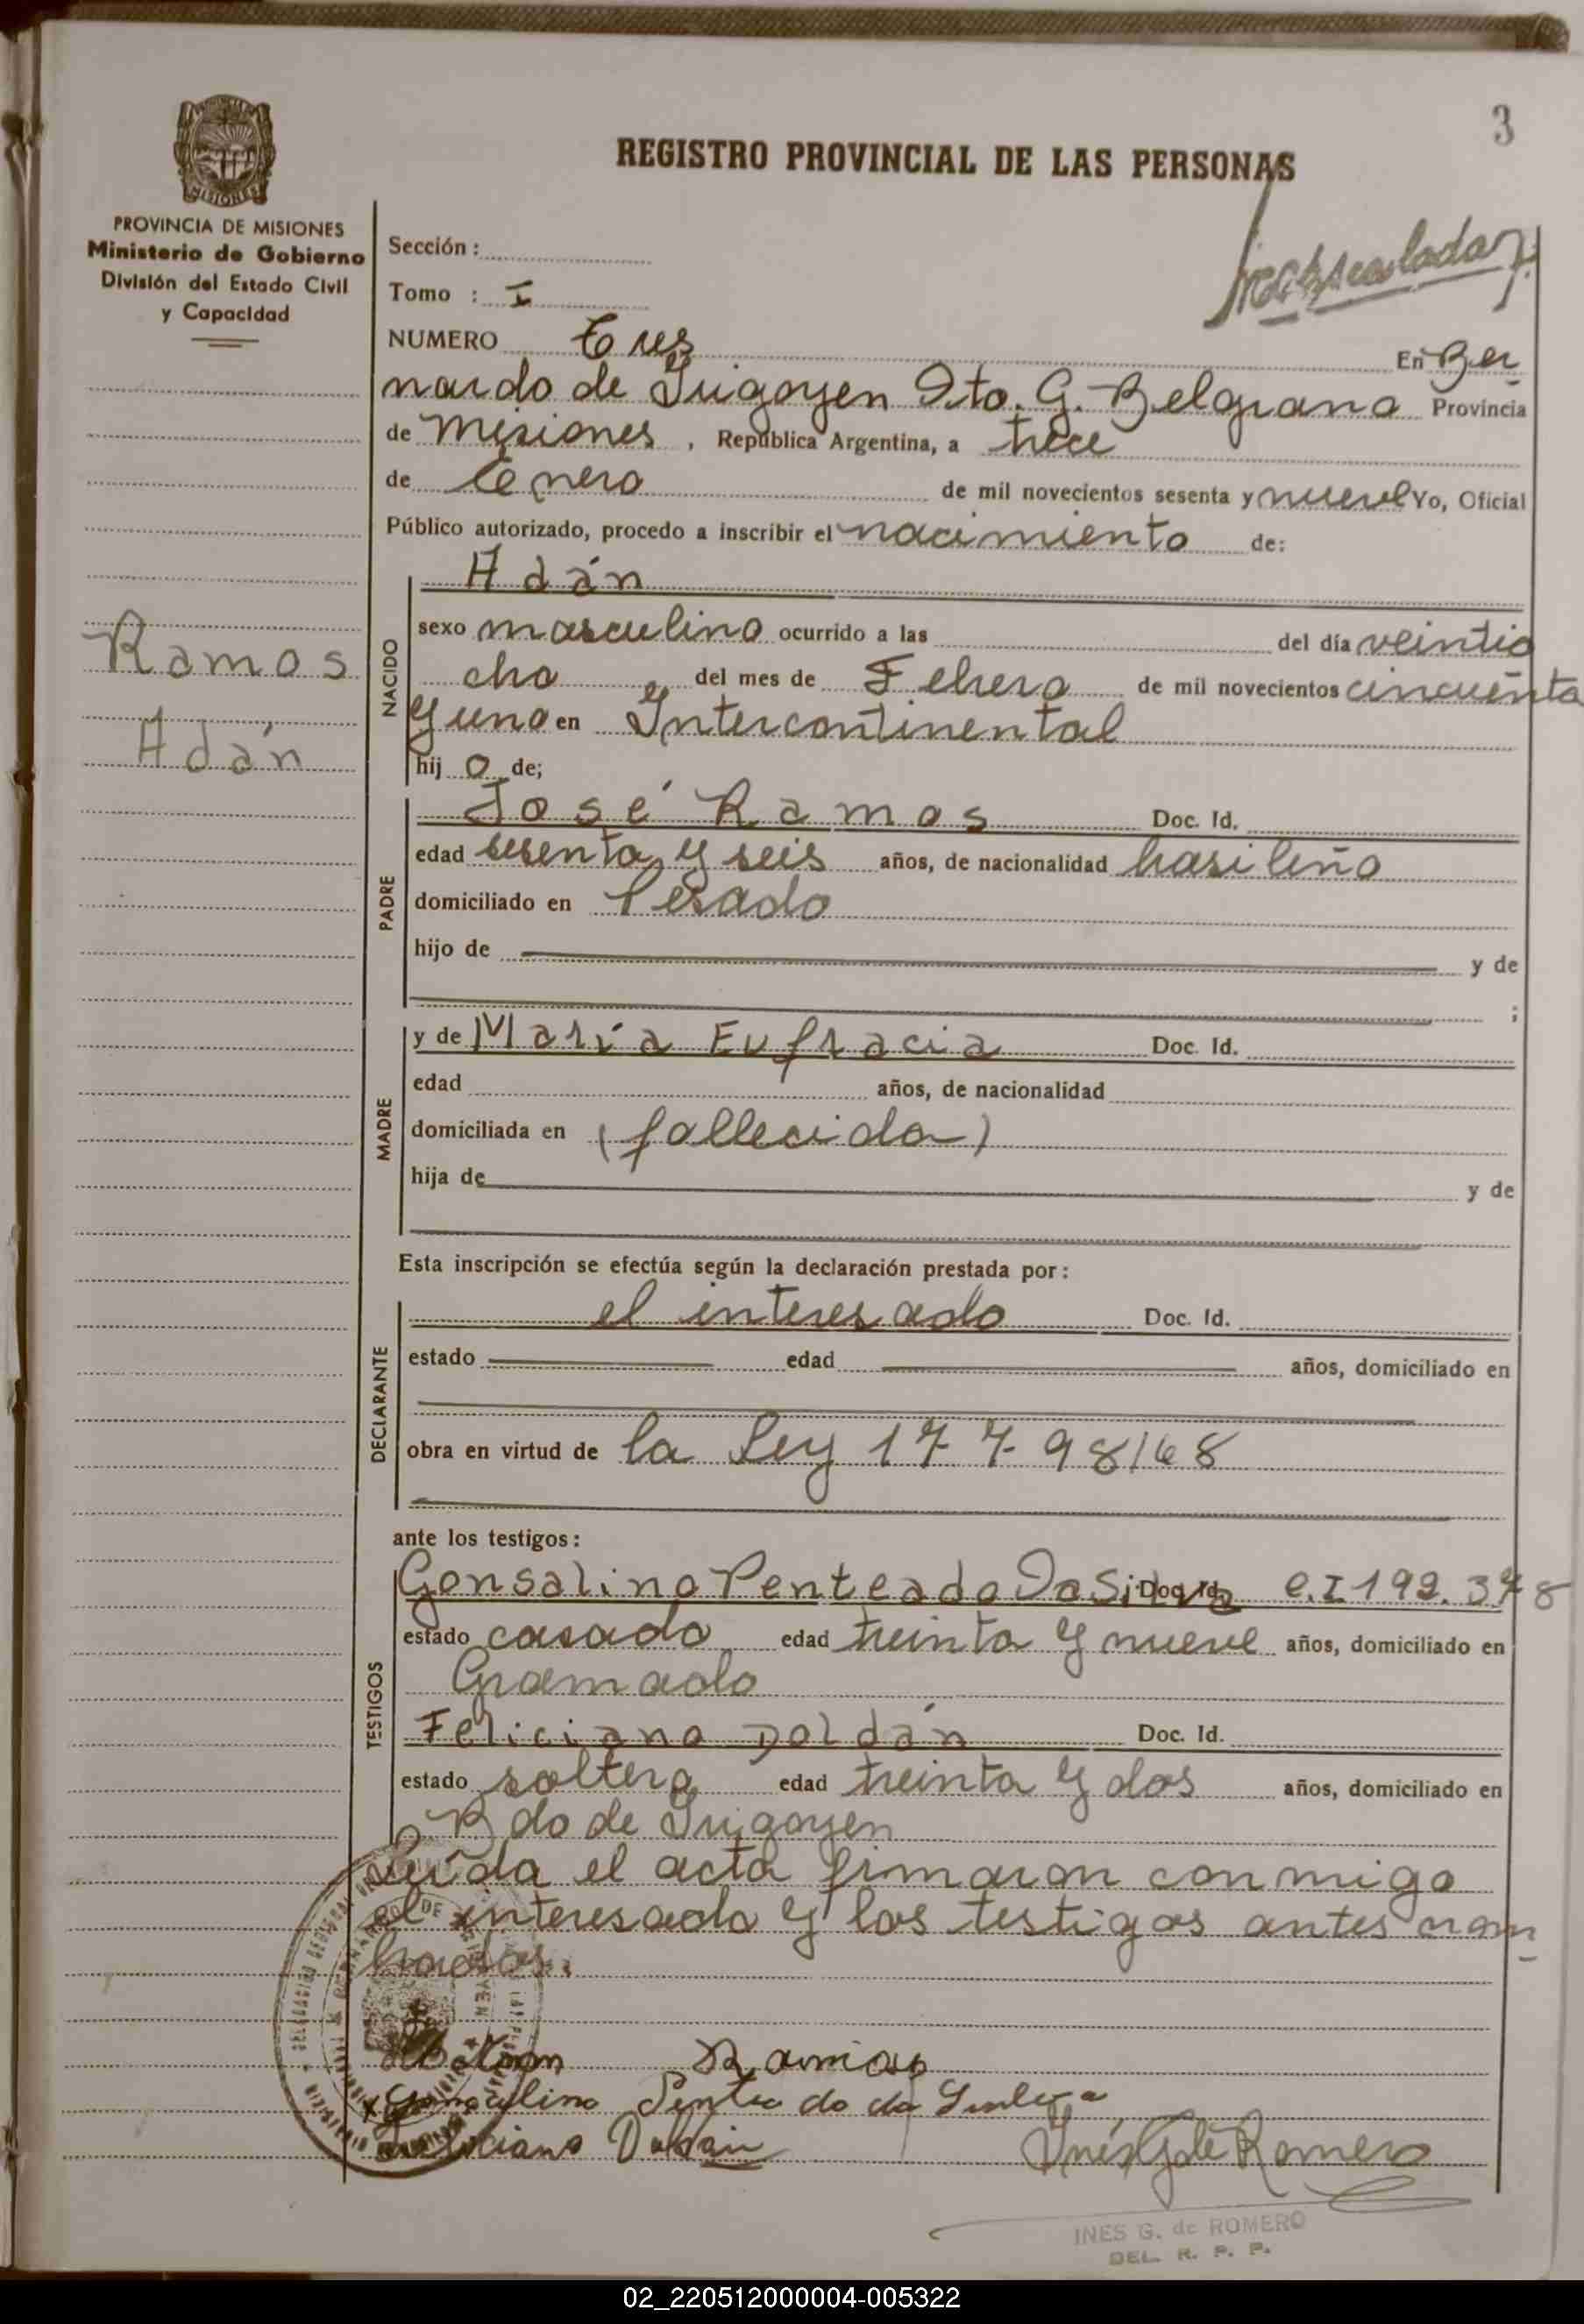 3
REGISTRO PROVINCIAL DE LAS PERSONAS
PROVINCIA DE MISIONES
Ministerio de Gobierno
División del Estado Civil
y Capacidad
MISIONES
Sección :
Tomo : I
NUMERO Tres En Ber
nardo de Irigoyen Dto. G. Belgrano Provincia
de Misiones, República Argentina, a trece
de Enero de mil novecientos sesenta y nueve Yo, Oficial
Público autorizado, procedo a inscribir el nacimiento de:
Ramos
Adán
NACIDO
Adán
sexo masculino ocurrido a las del día veintio
cho del mes de Febrero de mil novecientos cincuenta
y uno en Intercontinental
hij o de;
PADRE
José Ramos Doc. Id.
edad sesenta y seis años, de nacionalidad brasileño
domiciliado en Pesado
hijo de y de
;
MADRE
y de María Eufracia Doc. Id.
edad años, de nacionalidad
domiciliada en (fallecida)
hija de y de
Esta inscripción se efectúa según la declaración prestada por:
DECLARANTE
el interesado Doc. Id.
estado edad años, domiciliado en
obra en virtud de la Ley 17798/68
ante los testigos:
TESTIGOS
Gonsalino Penteado Da Silva Doc. Id. C.I 192.378
estado casado edad treinta y nueve años, domiciliado en
Gramado
Feliciano Doldán Doc. Id.
estado soltero edad treinta y dos años, domiciliado en
Bdo de Irigoyen
Leída el acta firmaron conmigo
el interesado y los testigos antes nom
brados.
Ramos
Gonsalino Penteado da Silva
Feliciano Doldán
Inés G de Romero
INES G. de ROMERO
DEL. R. P. P.
02_220512000004-005322